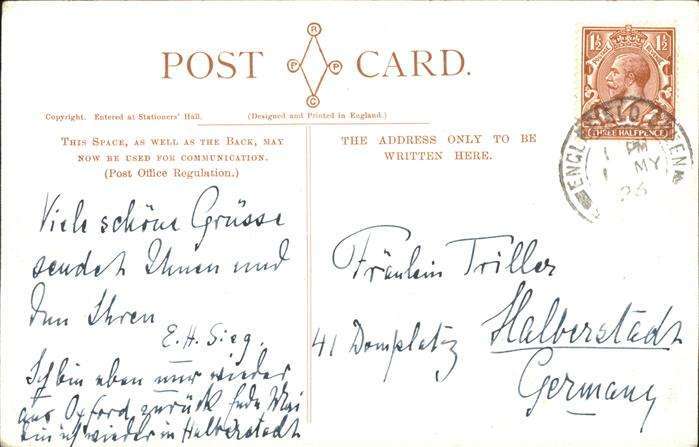 POST CARD.
R
P P
C
1½ 1½
POSTAGE REVENUE
THREE HALFPENCE
PM
1 MY
26
Copyright. Entered at Stationers' Hall.
(Designed and Printed in England.)
THIS SPACE, AS WELL AS THE BACK, MAY
NOW BE USED FOR COMMUNICATION.
(Post Office Regulation.)
THE ADDRESS ONLY TO BE
WRITTEN HERE.
Viele schöne Grüsse
sendet Ihnen und
den Ihren
E. H. Sieg.
Ich bin eben nur wieder
aus Oxford zurück Ende Mai
bin ich wieder in Halberstadt
Fräulein Triller
41 Domplatz Halberstadt
Germany